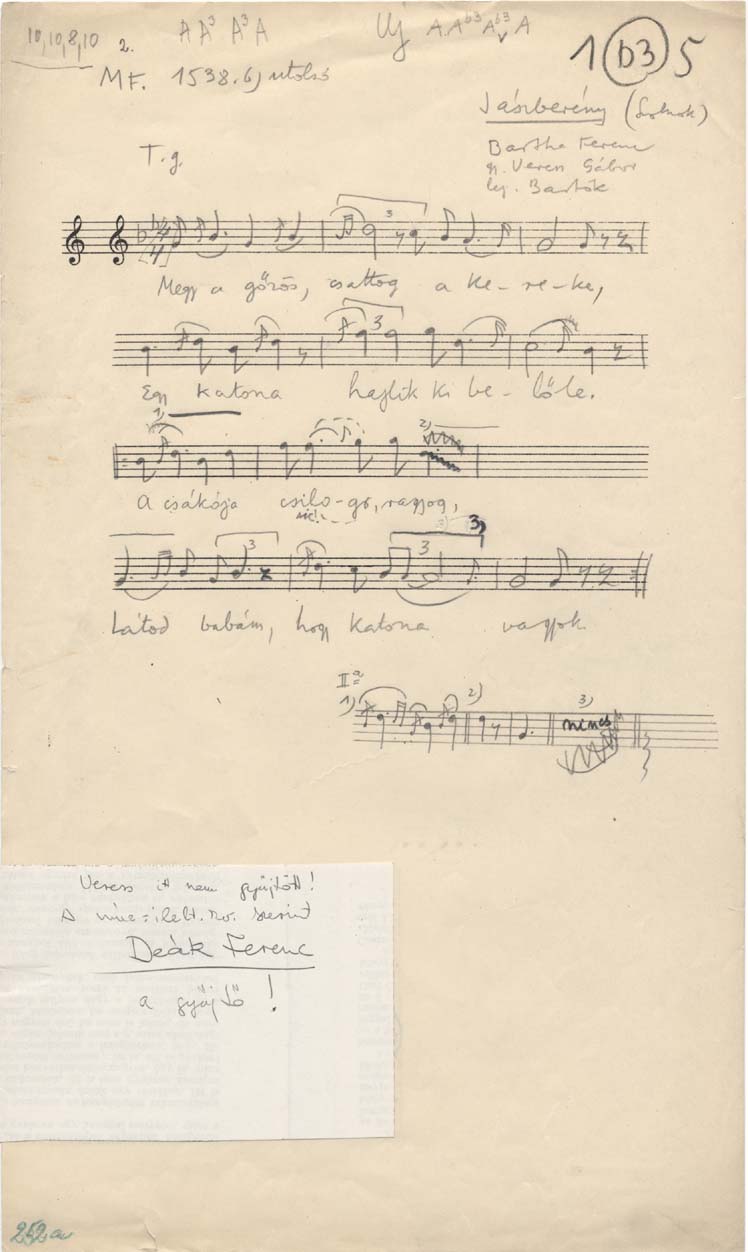 10,10,8,10 2. A A³ A³ A Uj A A b3 A b3 A 1 b3 5
MF. 1538.b) utolsó
Jászberény (Szolnok)
Bartha Ferenc
gy. Veress Gábor
lej. Bartók
T. g.
3
Megy a gőzös, csattog a ke-re-ke,
3
Egy katona hajlik ki be-lőle.
1) 2)
A csákója csilo-go, ragyog,
sic!
3 3 3)
Látod babám, hogy katona vagyok
II a
1) 2) 3)
nincs
Veress itt nem gyűjtött!
A szerint
Deák Ferenc
a gyűjtő!
252 a